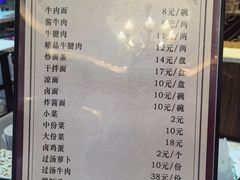 牛肉面 8元/碗
酱牛肉 8元/两
牛腱肉 11元/两
精品牛腱肉 12元/两
炒面条 14元/盘
干拌面 17元/盘
凉面 10元/盘
卤面 10元/碗
炸酱面 10元/碗
小菜 2元
中份菜 10元
大份菜 18元
卤鸡蛋 2元/个
过汤萝卜 10元/份
过汤牛肉 38元/份